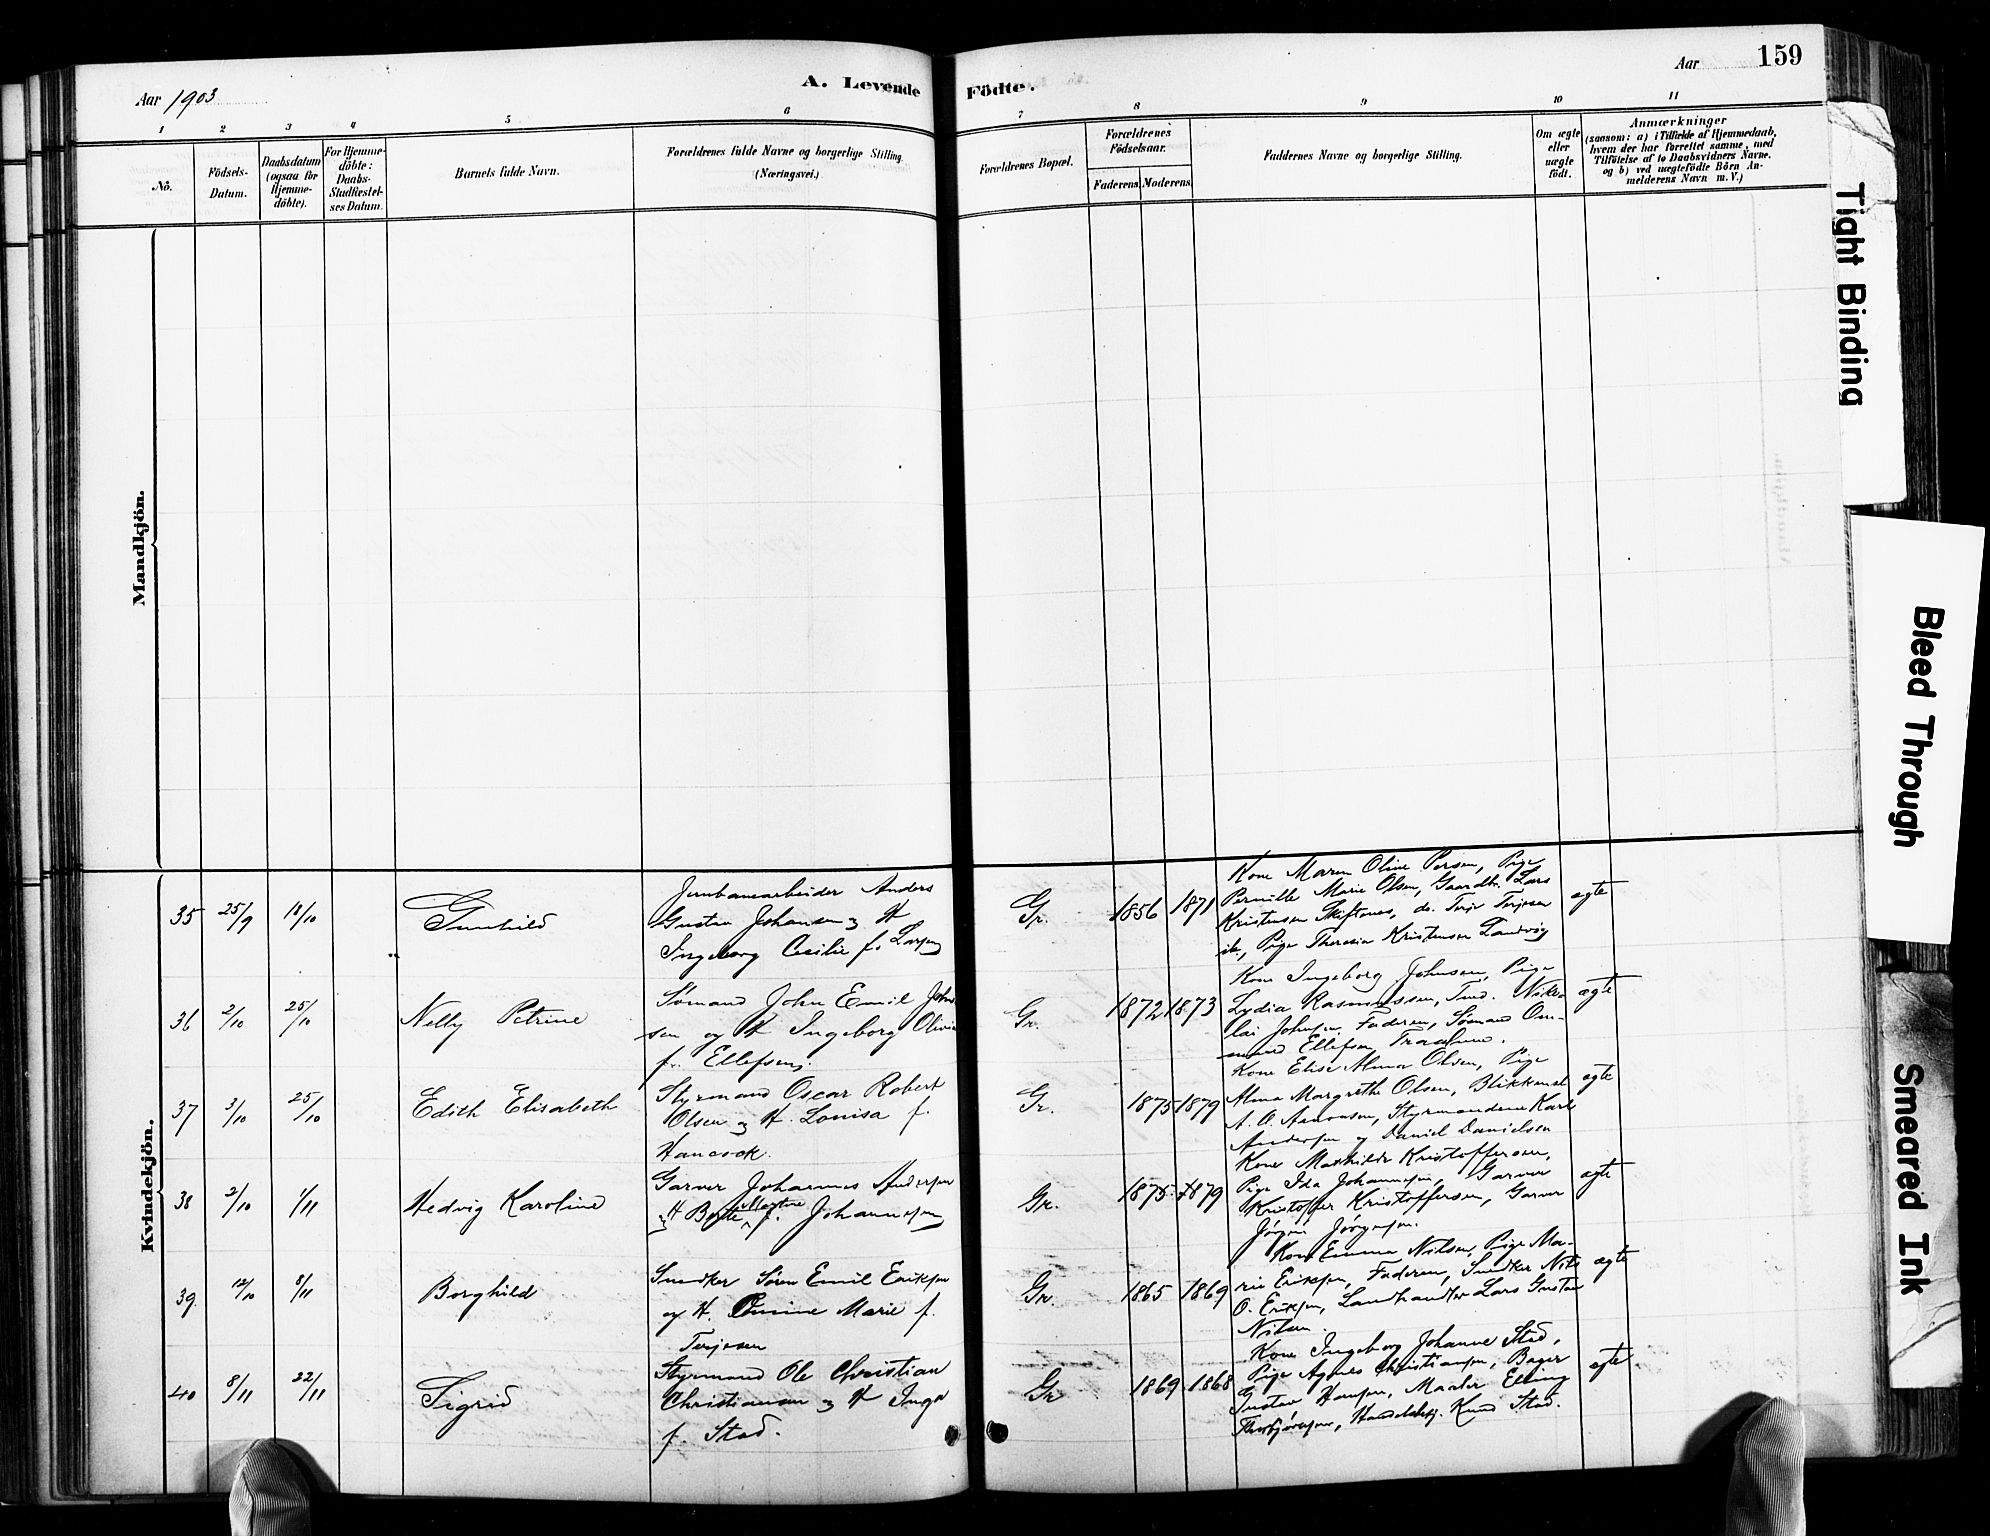 Aar 1903
A. Levende
Födte.
Aar
159
1 2 3 4 5 6 7 8 9 10 11
Nô.
Födsels-
Datum.
Daabsdatum
(ogsaa for
Hjemme-
döbte).
For Hjemme-
döbte:
Daabs-
Stadfæstel-
ses Datum.
Barnets fulde Navn.
Forældrenes fulde Navne og borgerlige Stilling
(Næringsvei.)
Forældrenes Bopæl.
Forældrenes
Födselsaar.
Faderens. Moderens.
Faddernes Navne og borgerlige Stilling.
Om ægte
eller
uægte
födt.
Anmærkninger
(saasom: a) i Tilfælde af Hjemmedaab,
hvem der har forrettet samme, med
Tilföielse af to Daabsvidners Navne.
og b) ved uægtefödte Börn An-
melderens Navn m. V.)
Mandkjön.
Kvindekjön.
35 25/9 18/10
Gunhild
Jernbanearbeider Anders
Gustav Johansen og H
Ingeborg Cecilie f. Larsen
Gr.
1856 1871
Kone Maren Oline Persen, Pige
Pernille Marie Olsen, Gaardbr. Lars
Kristensen Skiftenes, do. Terje Terjesen
ib., Pige Theresia Kristensen Landvig
ægte
36 2/10 25/10
Nelly Petrine
Sömand John Emil John
sen og H Ingeborg Olivia
f. Ellefsen.
Gr.
1872 1873
Kone Ingeborg Johnsen, Pige
Lydia Rasmussen, Tmd. Niko
lai Johnsen, Faderen, Sömand Om-
mund Ellefsen
ægte
37 3/10 25/10
Edith Elisabeth
Styrmand Oscar Robert
Olsen og H. Louisa f.
Hancock.
Gr.
1875 1879
Kone Elise Alma Olsen, Pige
Alma Margrethe Olsen, Blikkensl
A. O. Aanonsen, Styrmændene Karl
Andersen og Daniel Danielsen
ægte
38 2/10 1/11
Hedvig Karoline
Garver Johannes Andersen
og H Berte Martine f. Johannesen
Gr.
1875 1879
Kone Mathilde Kristoffersen,
Pige Ida Johannesen, Garver
Kristoffer Kristoffersen, Garver
Jörgen Jörgensen.
ægte
39. 12/10 8/11
Borghild
Snedker Sören Emil Eriksen
og H. Marie f.
Terjesen
Gr.
1865 1869
Kone Emma Nilsen, Pige Ma-
rie Eriksen, Faderen, Snedker Nils
O. Eriksen, Landhandler Lars Gustav
Nilsen.
ægte
40 8/11 22/11
Sigrid
Styrmand Ole Christian
Christiansen og H Inga
f. Stad.
Gr
1869 1868
Kone Ingeborg Johanne Stad,
Pige Agnes Christiansen, Bager
Gustav Hansen, Maaler Elling
Thorbjörnsen, Handelsbetj. Knud Stad.
ægte
Tight Binding
Bleed Through
Smeared Ink